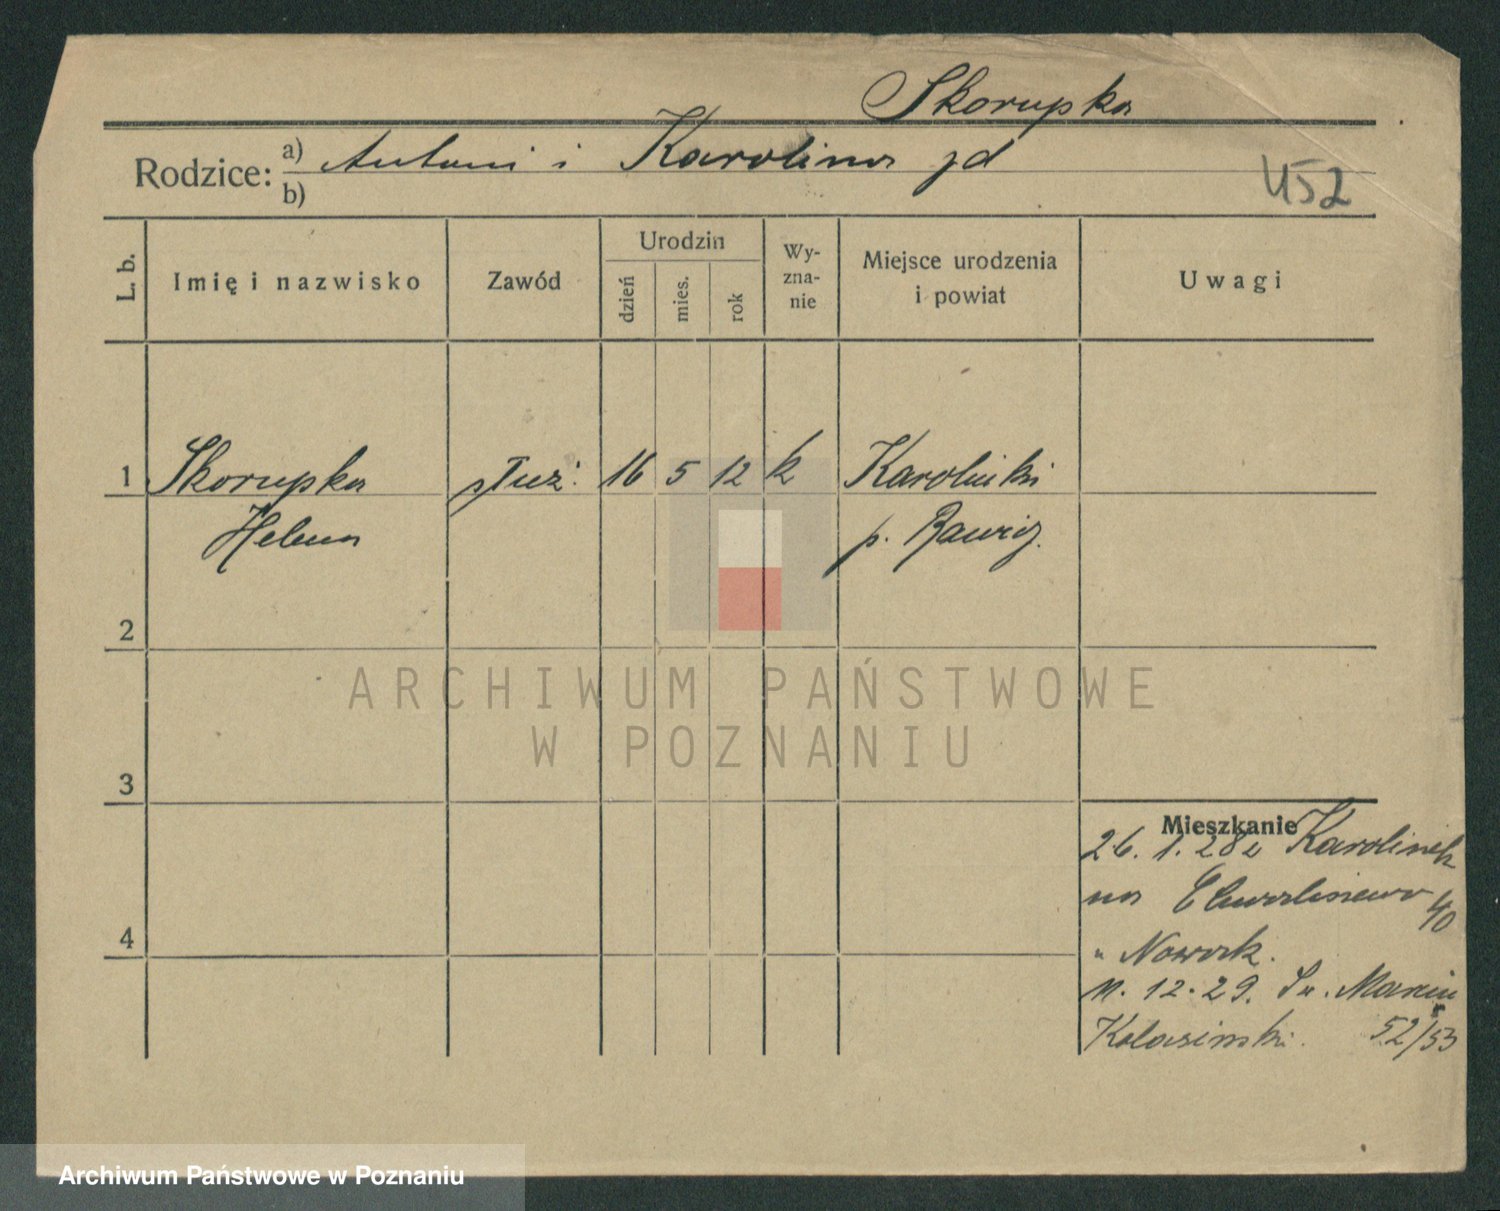 Skorupka
Rodzice: a) Antoni i Karolina jd
b)
452
L. b.
Imię i nazwisko
Zawód
Urodzin
dzień
mies.
rok
Wy-
zna-
nie
Miejsce urodzenia
i powiat
Uwagi
1 Skorupka służ. 16 5 12 k Karolinki
Helena p. Rawicz.
2
ARCHIWUM PAŃSTWOWE
W POZNANIU
3
Mieszkanie
26. 1. 28 z Karolinek
na 40
" Nowack.
11. 12. 29. Św. Marcin
Kolasinski. 52/53
4
Archiwum Państwowe w Poznaniu